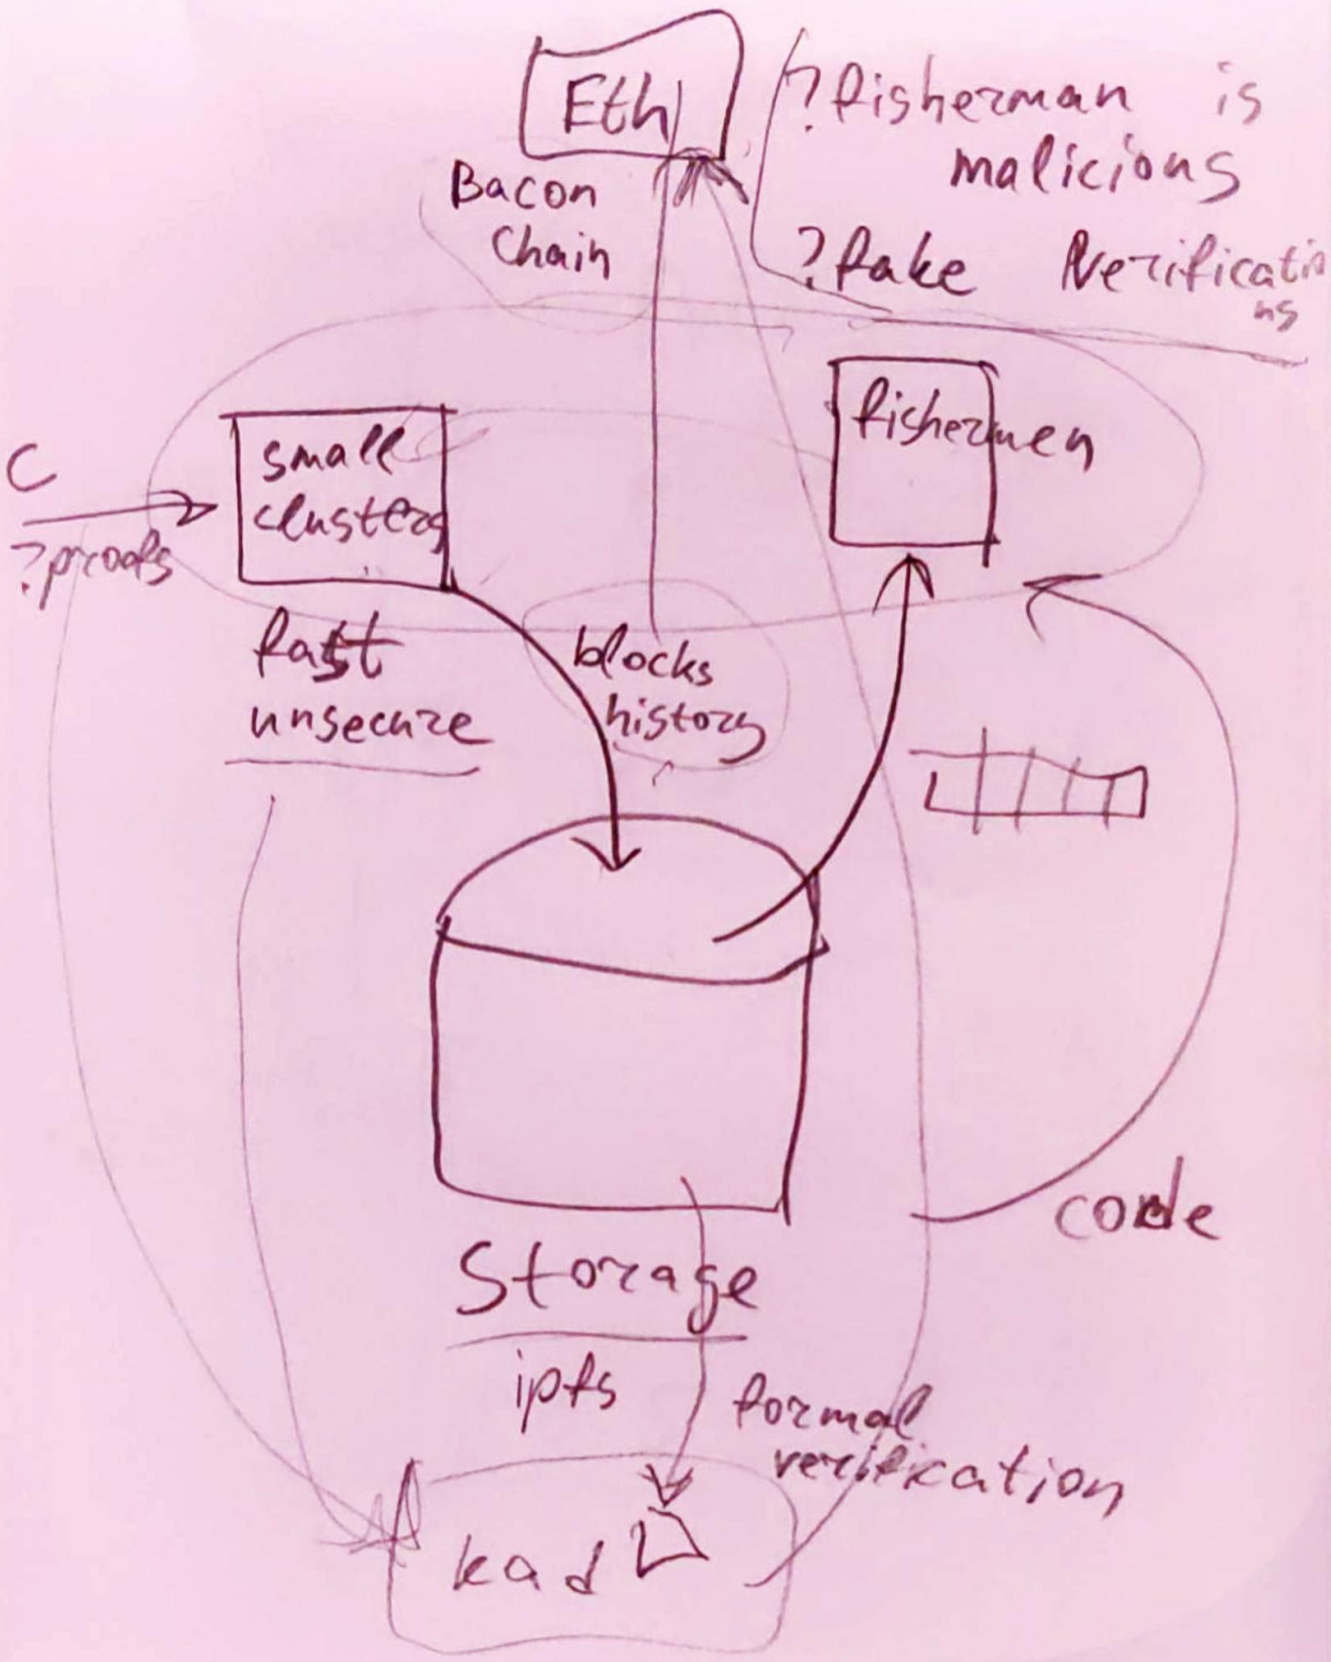 Eth
Bacon
Chain
?fisherman is
malicious
?fake Verificatio
ns
fishermen
small
clusters
C
?proofs
fast
unsecure
blocks
history
code
Storage
ipfs
formal
verification
kad